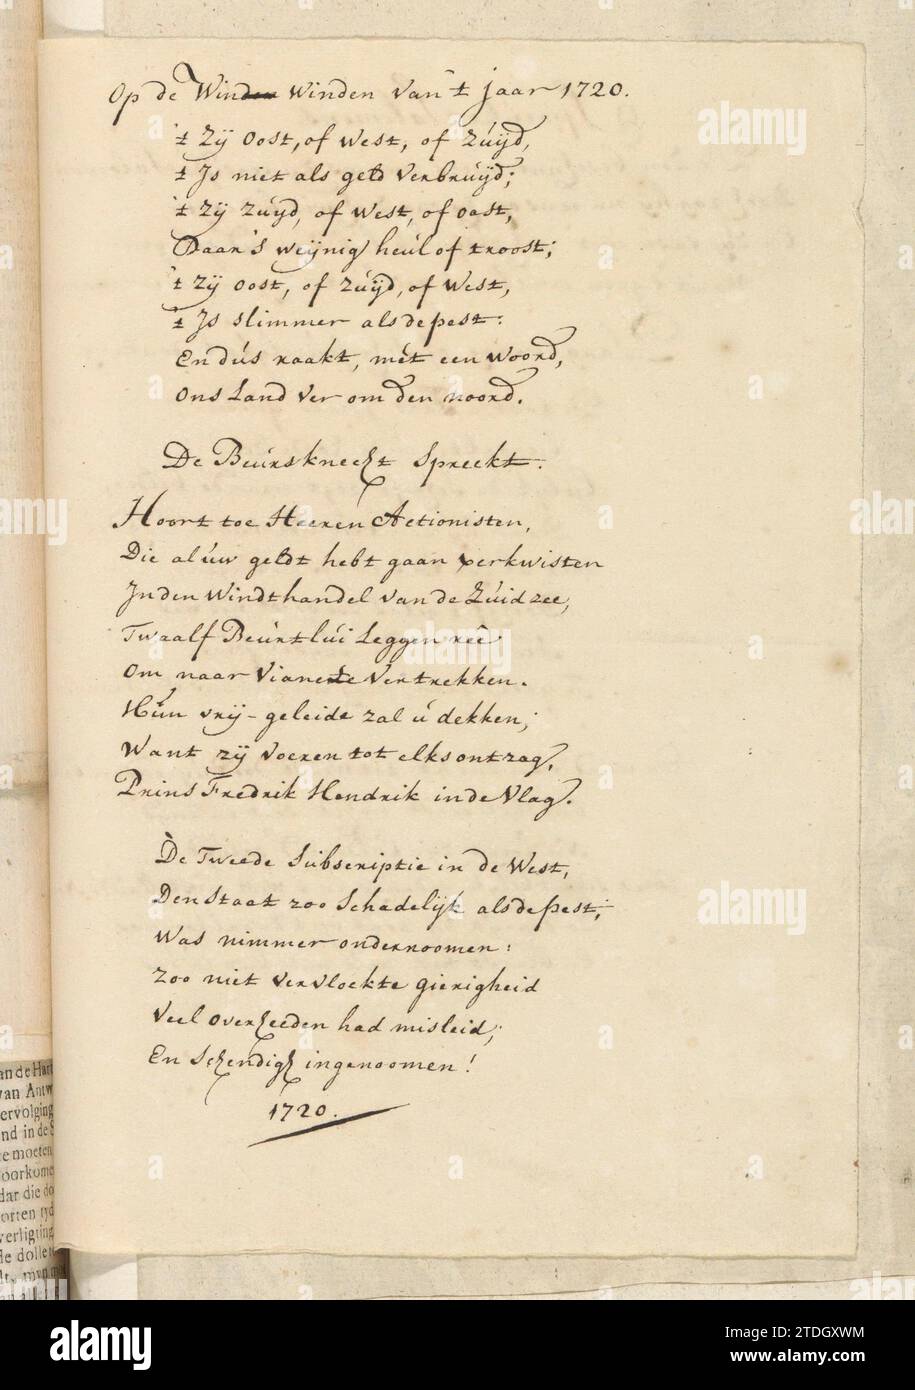 Op de Winden Winden van 't jaar 1720.
't Zÿ Oost, of West, of Zúÿd,
't Is niet als geld verbruÿd;
't Zÿ Zúÿd, of West, of oost,
Daar's weÿnig heúl of troost;
't Zÿ Oost, of Zúÿd, of West,
't Is slimmer als de pest:
En dús raakt, mét een woord,
Ons Land ver om den noord.
De Beúrsknecht Spreekt.
Hoort toe Heeren Actionisten,
Die al úw geldt hebt gaan verkwisten
In den Windthandel van de Zúid zee,
Twaalf Beúrtlúi Leggen reê
Om naar Viane te Vertrekken.
Hún vrÿ-geleide zal ú dekken;
Want zÿ voeren tot elks ontzag,
Prins Fredrik Hendrik in de Vlag.
De Tweede Súbscriptie in de West,
Den Staat zoo Schadelÿk als de pest;
Was nimmer ondernoomen:
Zoo niet vervloekte gierigheid
Veel overheeden had misleid;
En Schendigh ingenoomen!
1720.
an de Ha
van Antw
ervolging
nd in de S
te moeten
oorkome
dar die do
orten tyd
verligting
de dolle
alamy
Image ID: 2DTGXWM
www.alamy.com